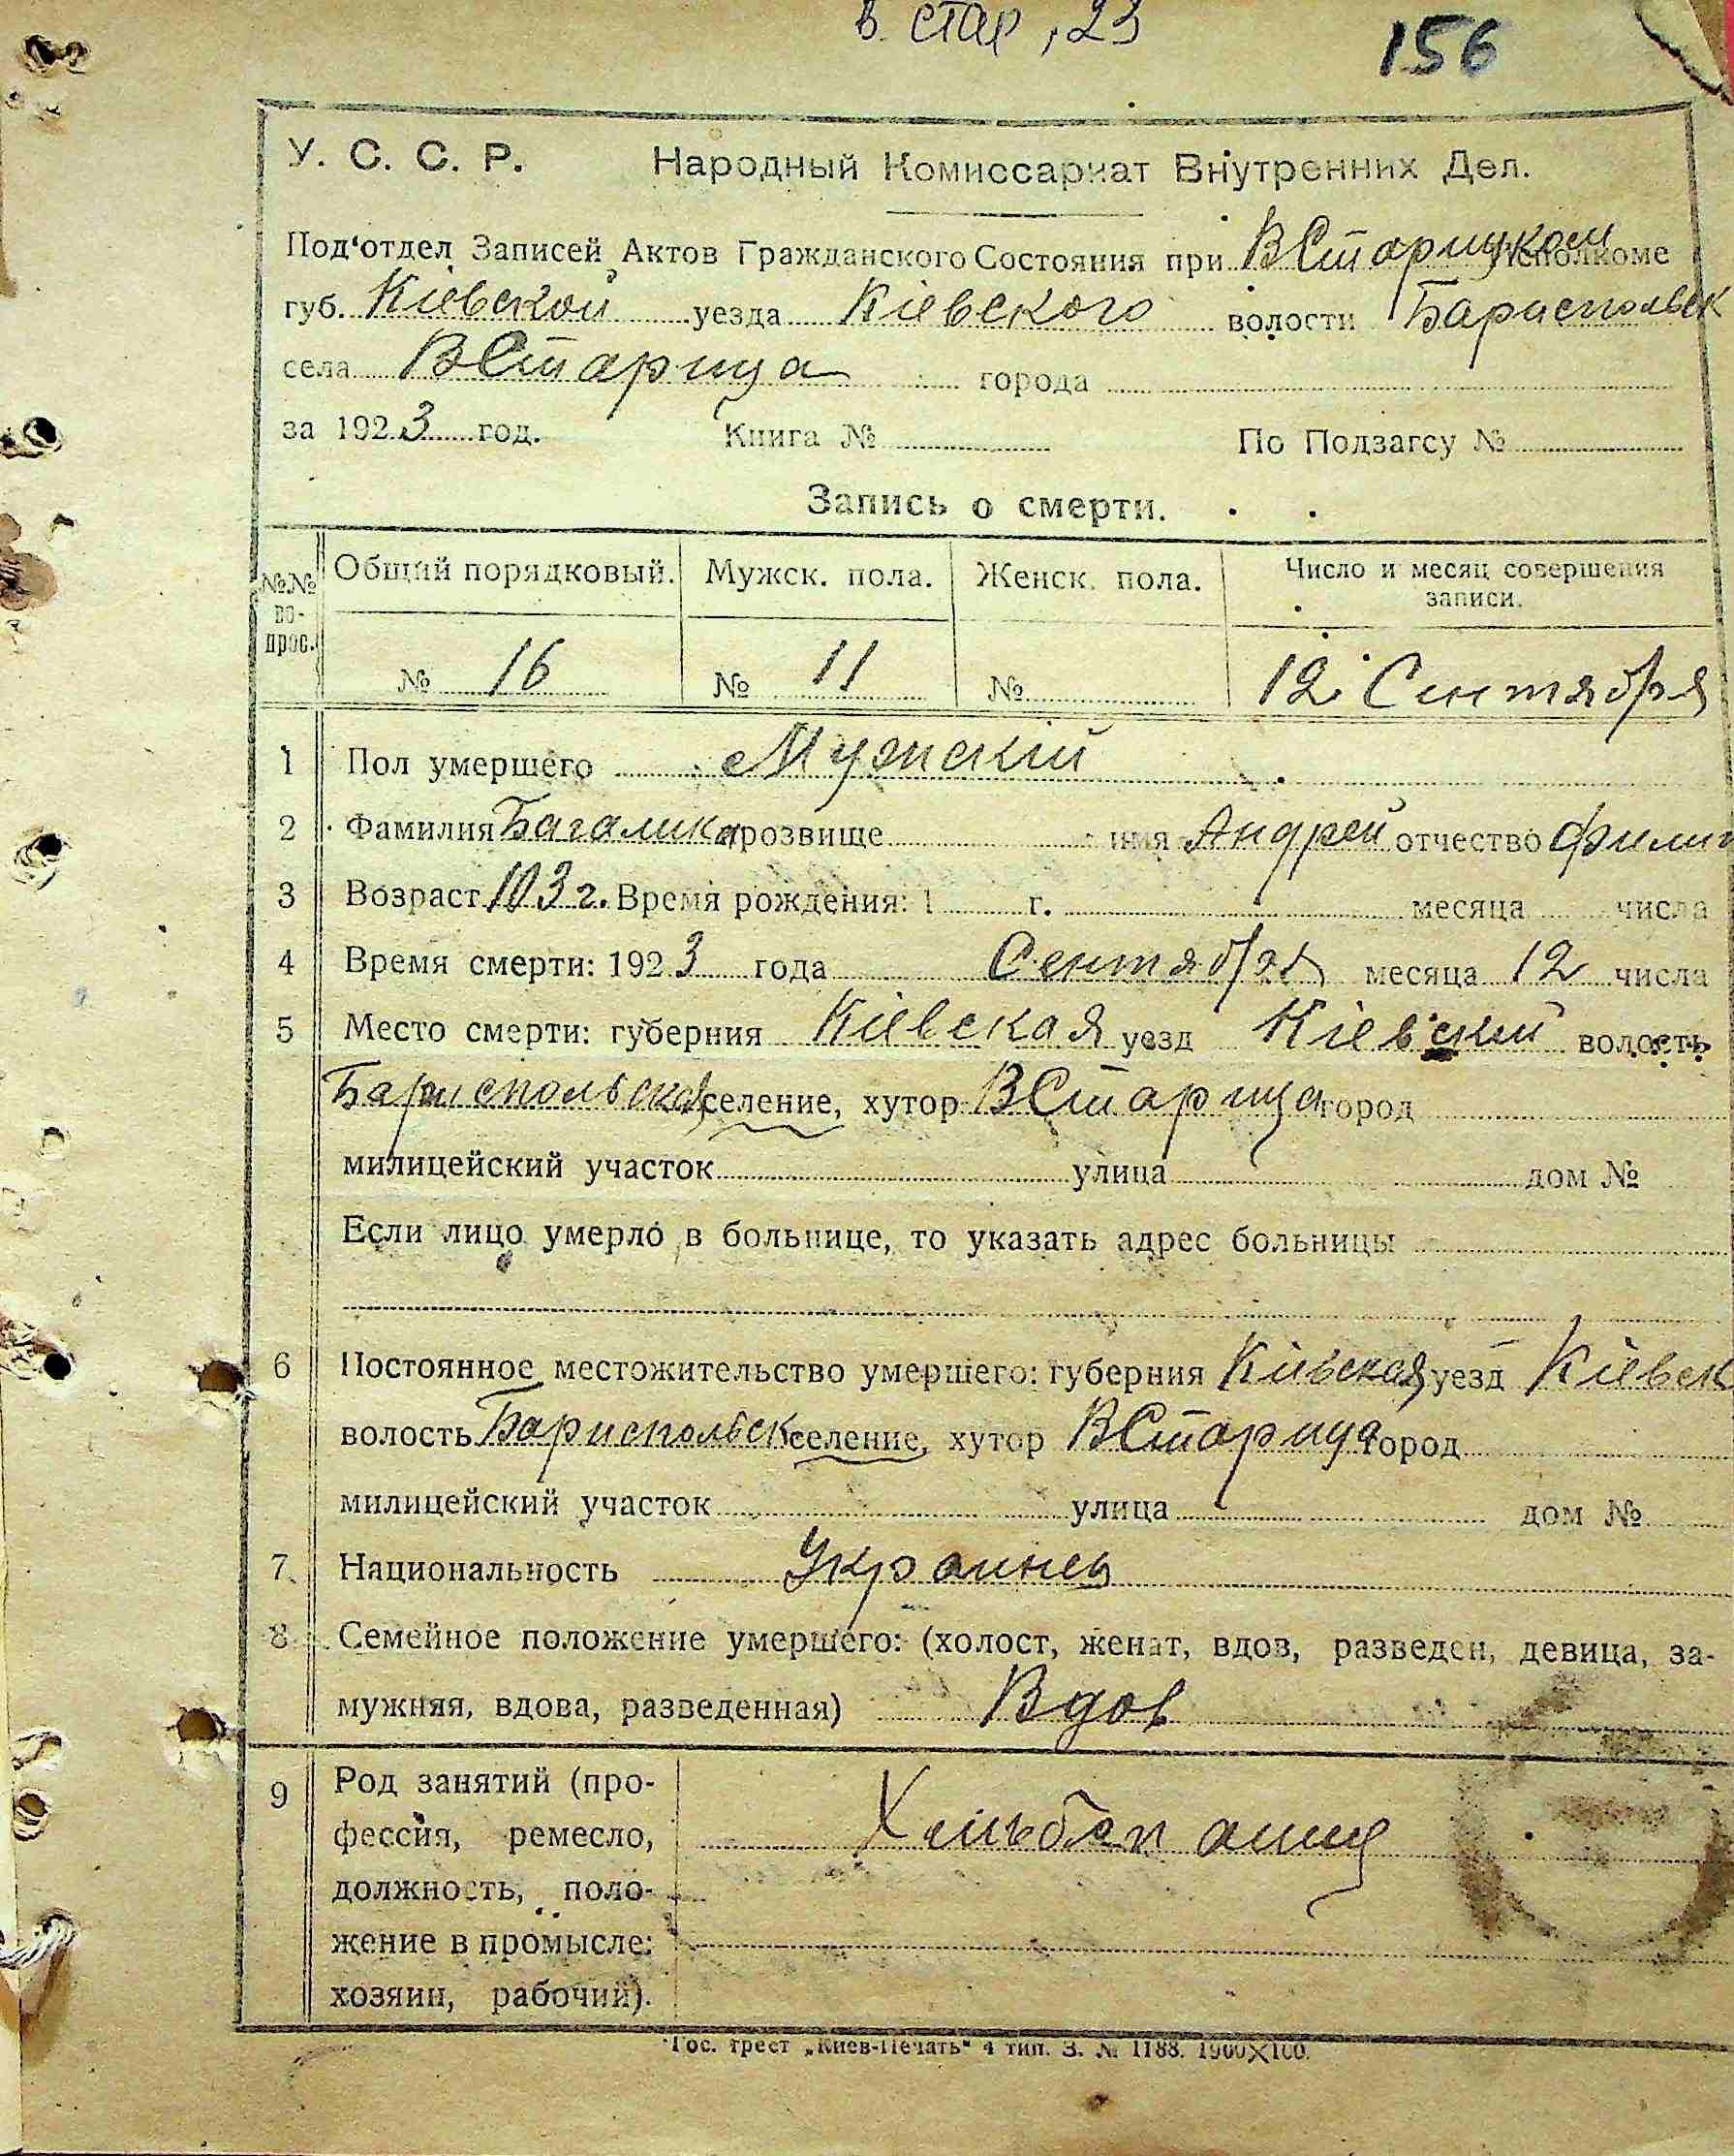 в. стар, 23
156
У. С. С. Р. Народный Комиссариат Внутренних Дел.
Под'отдел Записей Актов Гражданского Состояния при ВСтарицком Исполкоме
губ. Кіевской уезда Кіевского волости Бариспольск
села ВСтарица города
за 1923 год. Книга № По Подзагсу №
Запись о смерти.
№№ во-прос. Общий порядковый. Мужск. пола. Женск. пола. Число и месяц совершения записи.
№ 16 № 11 № 12 Сентября
1 Пол умершего Мужскій
2 Фамилия Багалика прозвище имя Андрей отчество Филип
3 Возраст 103 г. Время рождения: 1 г. месяца числа
4 Время смерти: 1923 года Сентября месяца 12 числа
5 Место смерти: губерния Кіевская уезд Кіевский волость
Бариспольская селение, хутор ВСтарица город
милицейский участок улица дом №
Если лицо умерло в больнице, то указать адрес больницы
6 Постоянное местожительство умершего: губерния Кіевская уезд Кіевск
волость Бариспольск селение, хутор ВСтарица город
милицейский участок улица дом №
7 Национальность Украинец
8 Семейное положение умершего: (холост, женат, вдов, разведен, девица, за-
мужняя, вдова, разведенная) Вдов
9 Род занятий (про-
фессия, ремесло, Хльбопашец
должность, поло-
жение в промысле:
хозяин, рабочий).
Гос. трест „Киев-Печать" 4 тип. З. № 1188. 1900Х100.